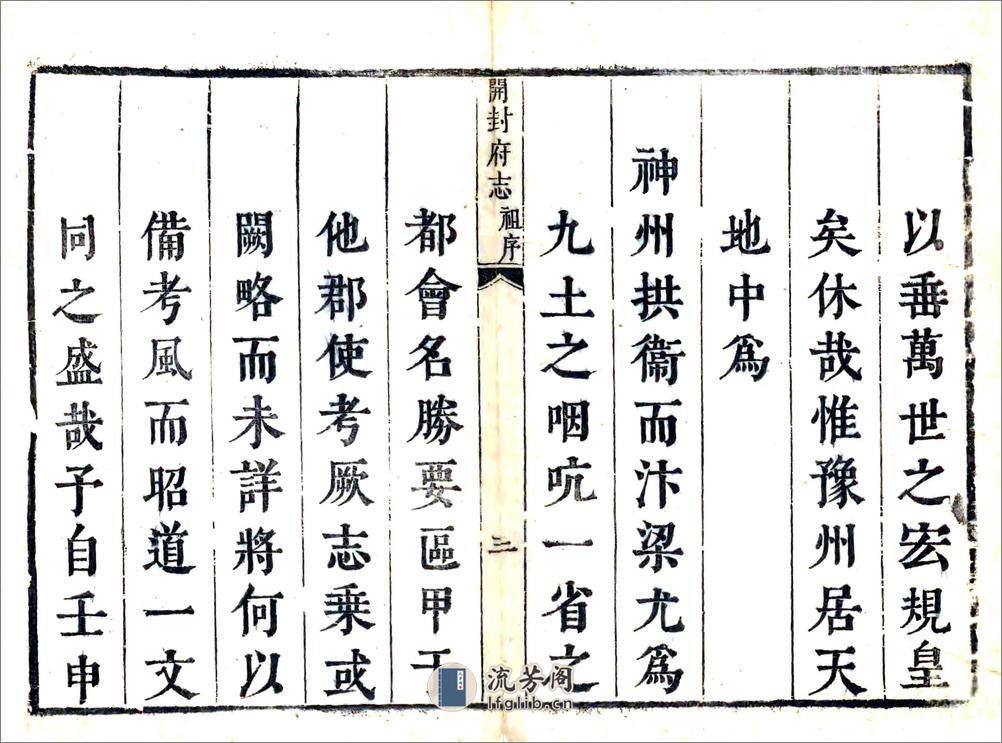 以垂萬世之宏規皇
矣休哉惟豫州居天
地中爲
神州拱衞而汴梁尤爲
九土之咽吭一省之
開封府志 祖序 三
都會名勝要區甲于
他郡使考厥志乘或
闕略而未詳將何以
備考風而昭道一文
同之盛哉予自壬申
流芳阁
lfglib.cn